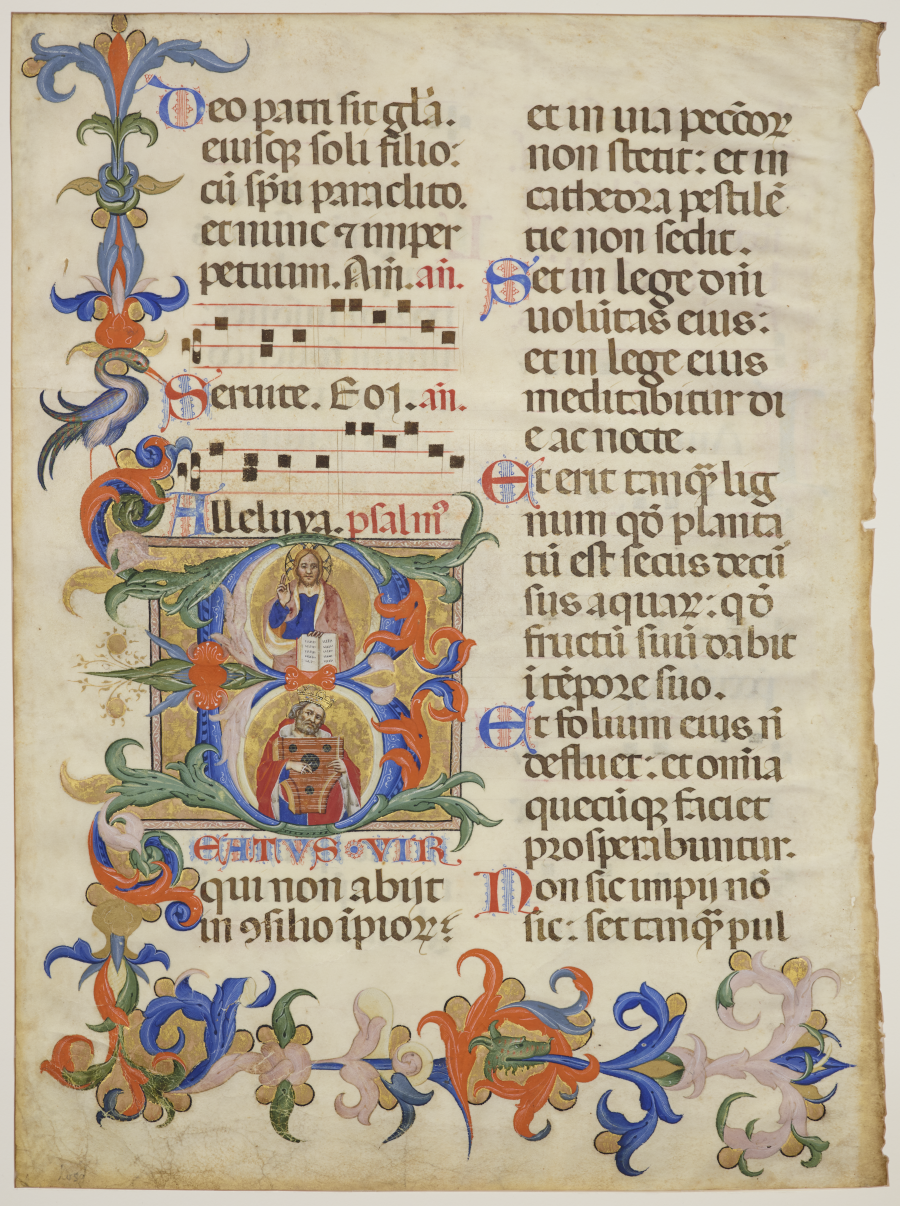 Deo patri sit gl̄a.
eiusqꝫ soli filio:
cū sp̄u paraclito.
et nunc ⁊ imper
petuum. Am̄. an̄.
Seruite. E o ı . an̄.
Alleluya. psalm᷒
BEATVS·VIR
qui non abijt
in ꝯsilio īpioꝝ:
et in uia pecc̄oꝝ
non stetit: et in
cathedra pestilē
tie non sedit.
Set in lege dn̄i
uolūtas eius:
et in lege eius
meditabitur di
e ac nocte.
Et erit tanqꝫ lig
num qd̄ planta
tū est secus decū
sus aquaꝝ: qd̄
fructū suū dabit
ī tēpore suo.
Et folium eius n̄
defluet: et om̄ia
quecūqꝫ faciet
prosperabuntur.
Non sic impij nō
sic: set tanqꝫ pul